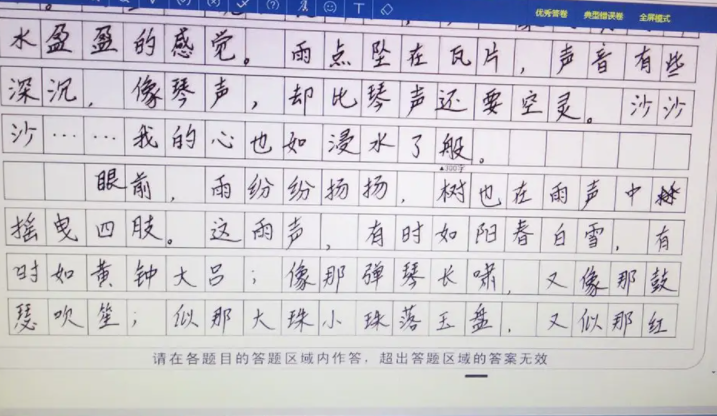 优秀答卷 典型错误卷 全屏模式
水盈盈的感觉。雨点坠在瓦片，声音有些
深沉，像琴声，却比琴声还要空灵。沙沙
沙……我的心也如浸水了般。
▲300字
眼前，雨纷纷扬扬，树也在雨声中
摇曳四肢。这雨声，有时如阳春白雪，有
时如黄钟大吕；像那弹琴长啸，又像那鼓
瑟吹笙；似那大珠小珠落玉盘，又似那红
请在各题目的答题区域内作答，超出答题区域的答案无效